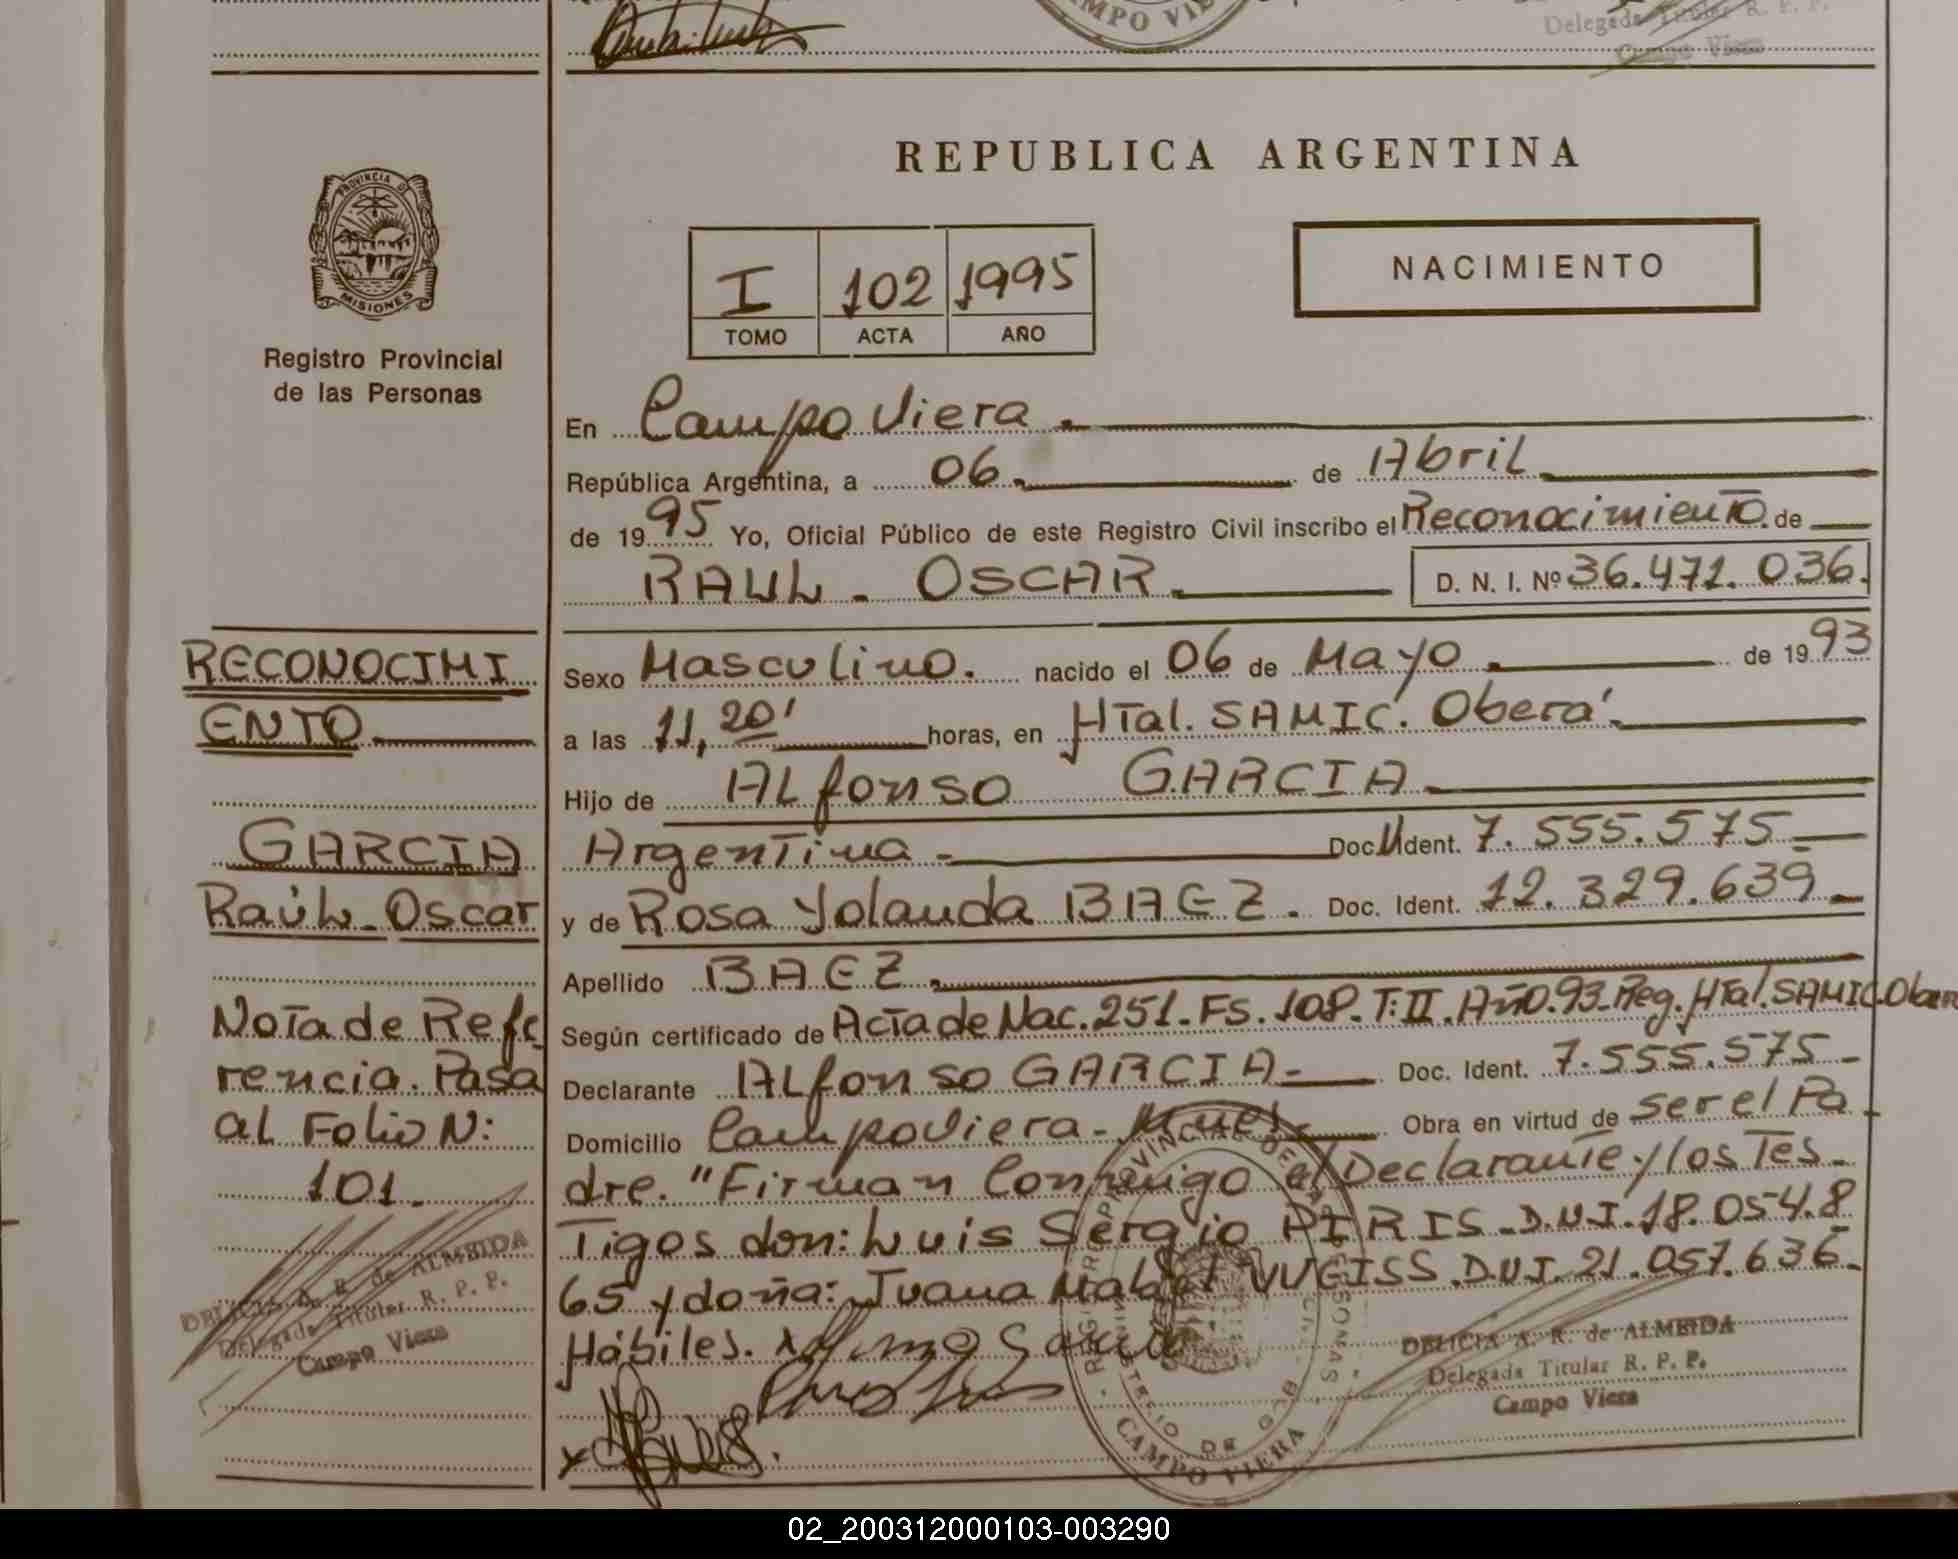 CAMPO VIE
Delegada Titular R. P. P.
Campo Viera
REPUBLICA ARGENTINA
PROVINCIA DE
MISIONES
Registro Provincial
de las Personas
I 102 1995
TOMO ACTA AÑO
NACIMIENTO
En Campo Viera.
República Argentina, a 06. de Abril
de 1995 Yo, Oficial Público de este Registro Civil inscribo el Reconocimiento. de
RAUL - OSCAR. D. N. I. Nº 36.471.036.
RECONOCIMI
ENTO
GARCIA
Raúl - Oscar
Nota de Refe
rencia. Pasa
al Folio N:
101.
DELICIA A. R. de ALMEIDA
Delegada Titular R. P. P.
Campo Viera
Sexo Masculino. nacido el 06 de Mayo. de 1993
a las 11,20' horas, en HTal. SAMIC. Oberá.
Hijo de ALfonso GARCIA
Argentina - Doc. Ident. 7.555.575
y de Rosa Yolanda BAEZ. Doc. Ident. 12.329.639
Apellido BAEZ.
Según certificado de Acta de Nac. 251. Fs. 108. T: II. Año. 93. Reg. HTal. SAMIC. Obera
Declarante ALfonso GARCIA - Doc. Ident. 7.555.575
Domicilio Campo Viera - Mnes. Obra en virtud de ser el Pa
dre. "Firman Conmigo el Declarante y los Tes
Tigos don: Luis Sergio PIRIS - D.N.I. 18.054.8
65 y doña: Juana Mabel VUGISS. D.N.I. 21.057.636.
Hábiles.
REGISTRO PROVINCIAL DE LAS PERSONAS
MINISTERIO DE GOB
CAMPO VIERA
DELICIA A. R. de ALMEIDA
Delegada Titular R. P. P.
Campo Viera
02_200312000103-003290